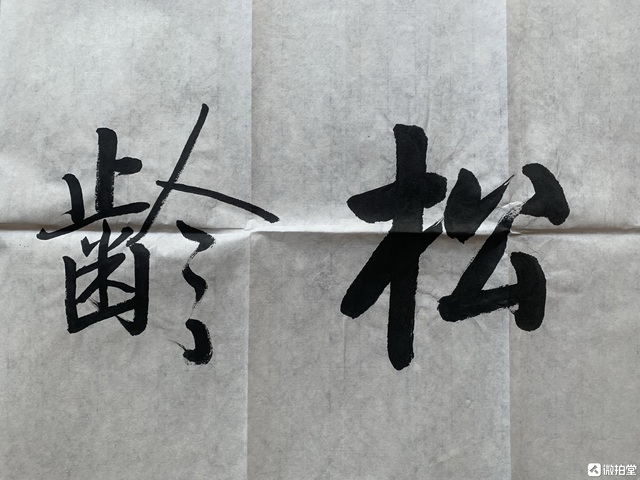 松齡
微拍堂